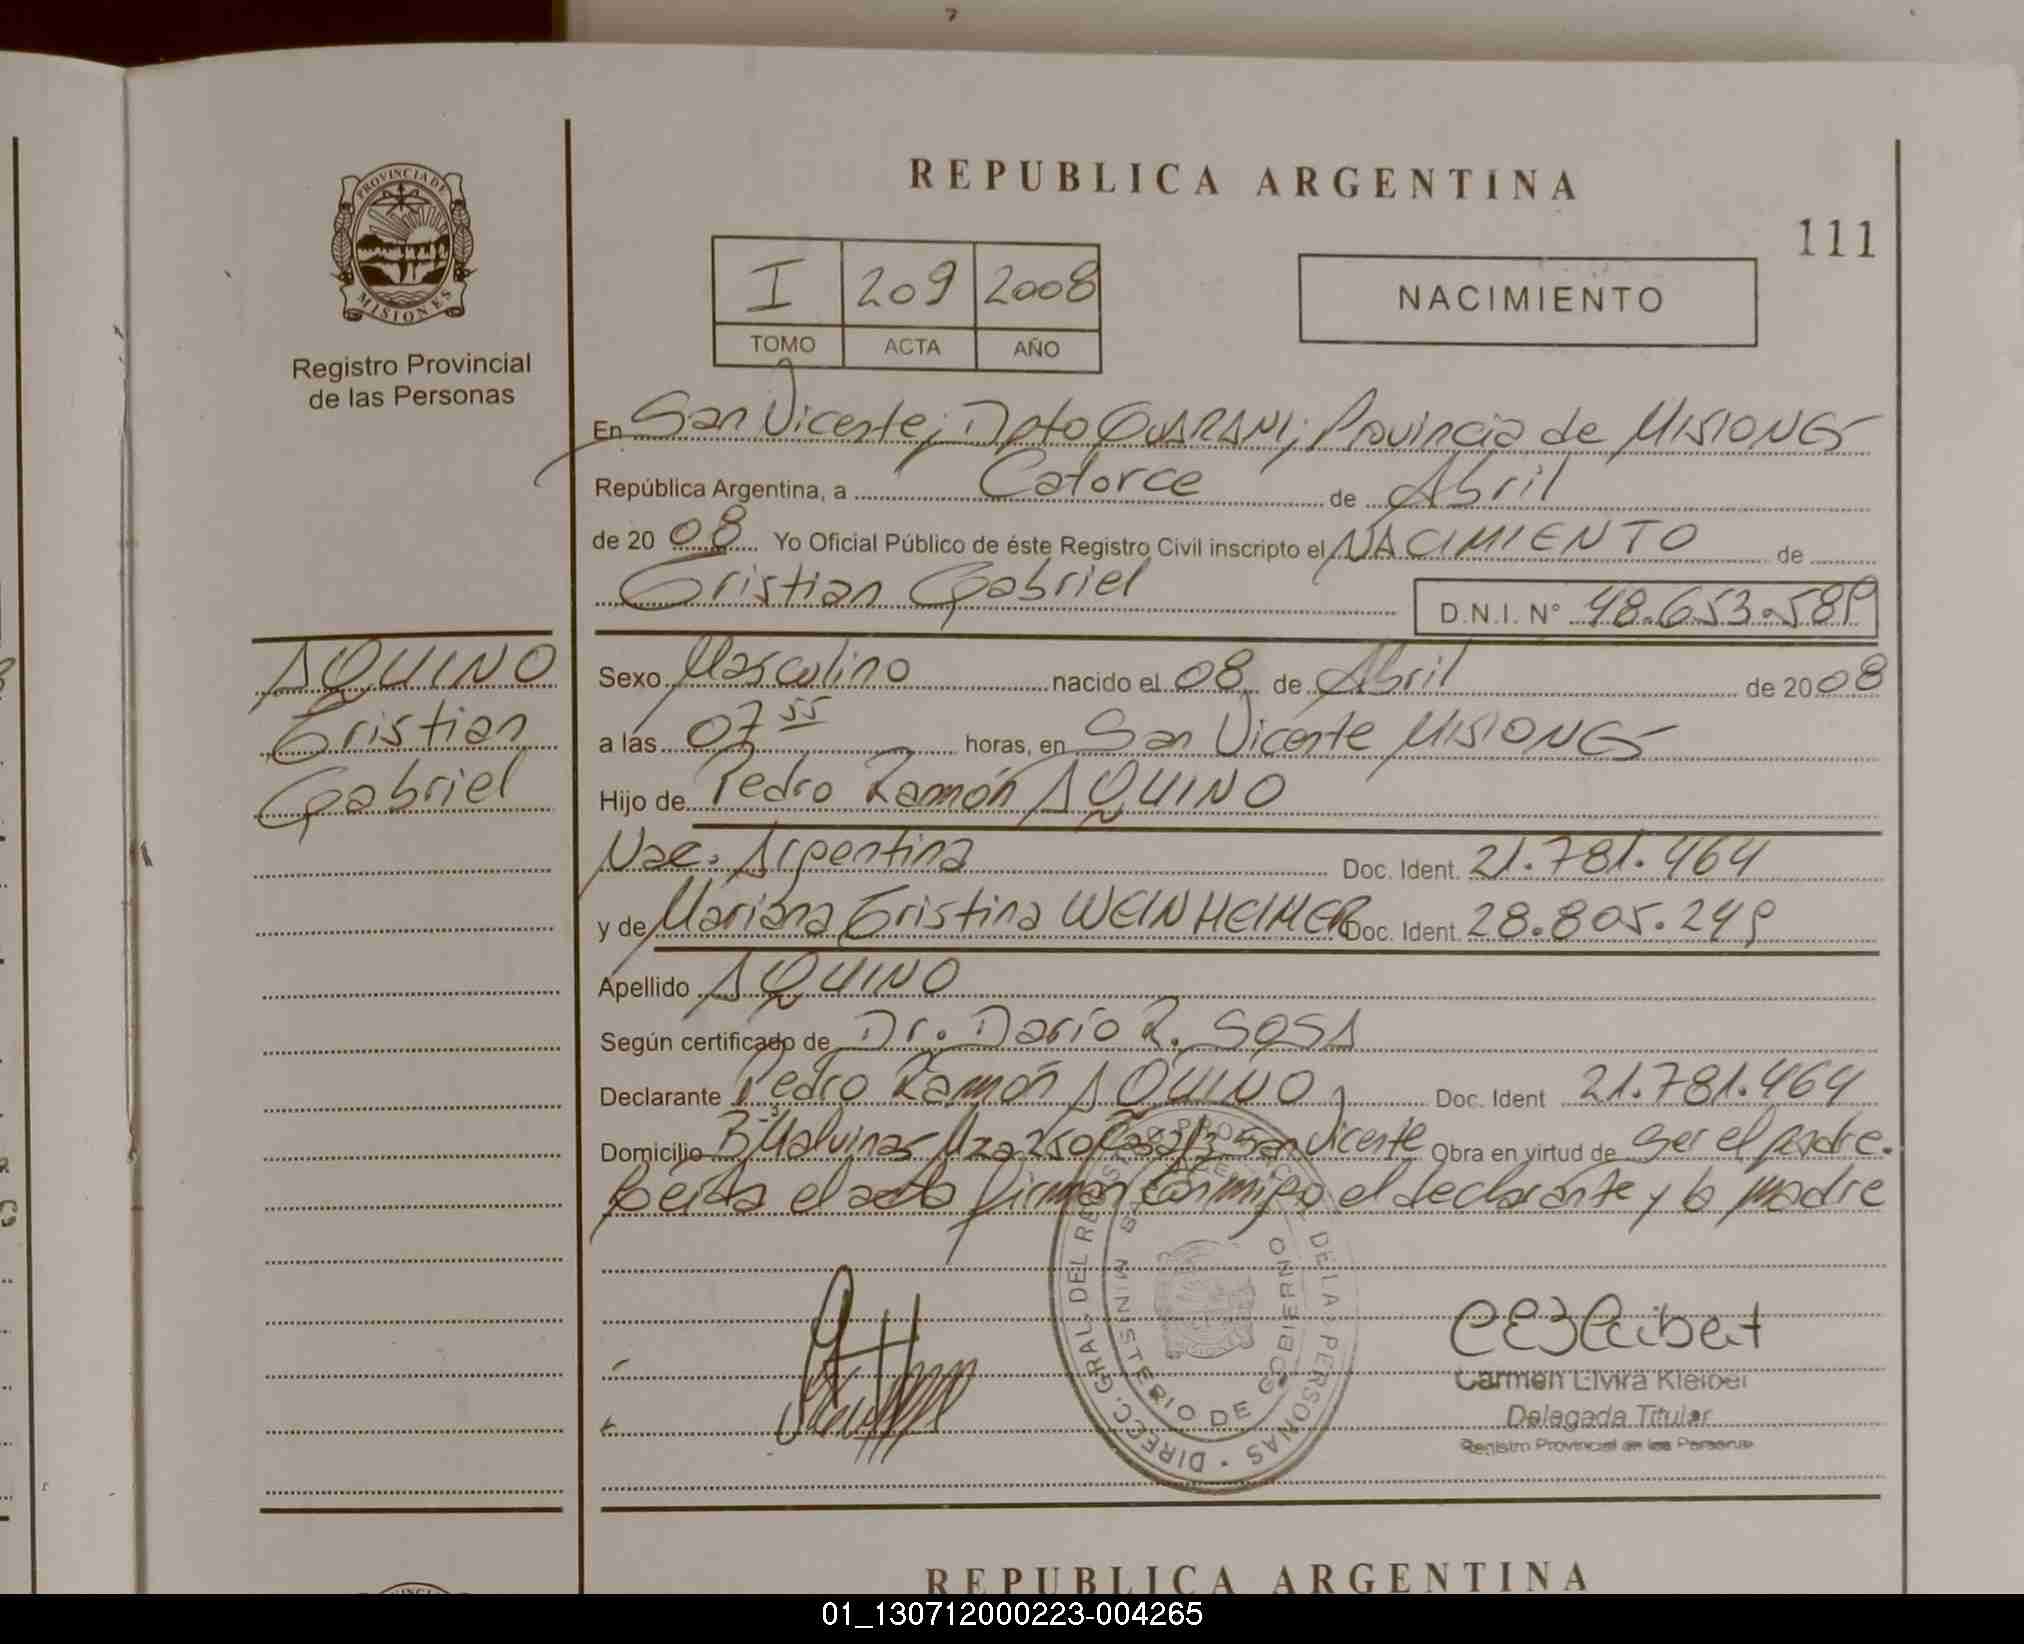 REPUBLICA ARGENTINA
111
PROVINCIA DE MISIONES
Registro Provincial
de las Personas
I 209 2008
TOMO ACTA AÑO
NACIMIENTO
En San Vicente; Dpto GUARANI; Provincia de MISIONES
República Argentina, a Catorce de Abril
de 20 08 Yo Oficial Público de éste Registro Civil inscripto el NACIMIENTO de
Cristian Gabriel D.N.I. N° 48.653.589
AQUINO
Cristian
Gabriel
Sexo Masculino nacido el 08 de Abril de 20 08
a las 07 55 horas, en San Vicente MISIONES
Hijo de Pedro Ramón AQUINO
Nac. Argentina Doc. Ident. 21.781.464
y de Mariana Cristina WEINHEIMER Doc. Ident. 28.805.249
Apellido AQUINO
Según certificado de Dr. Darío R. SOSA
Declarante Pedro Ramón AQUINO Doc. Ident 21.781.464
Domicilio B° Malvinas Mza 250 Casa San Vicente Obra en virtud de ser el padre.
Leída el acta firman conmigo el declarante y la madre
DIRECC. GRAL. DEL REGISTRO PROVINCIAL DE LAS PERSONAS
MINISTERIO DE GOBIERNO
MISIONES
Carmen Elvira Kleiber
Delegada Titular
Registro Provincial de las Personas
REPUBLICA ARGENTINA
01_130712000223-004265